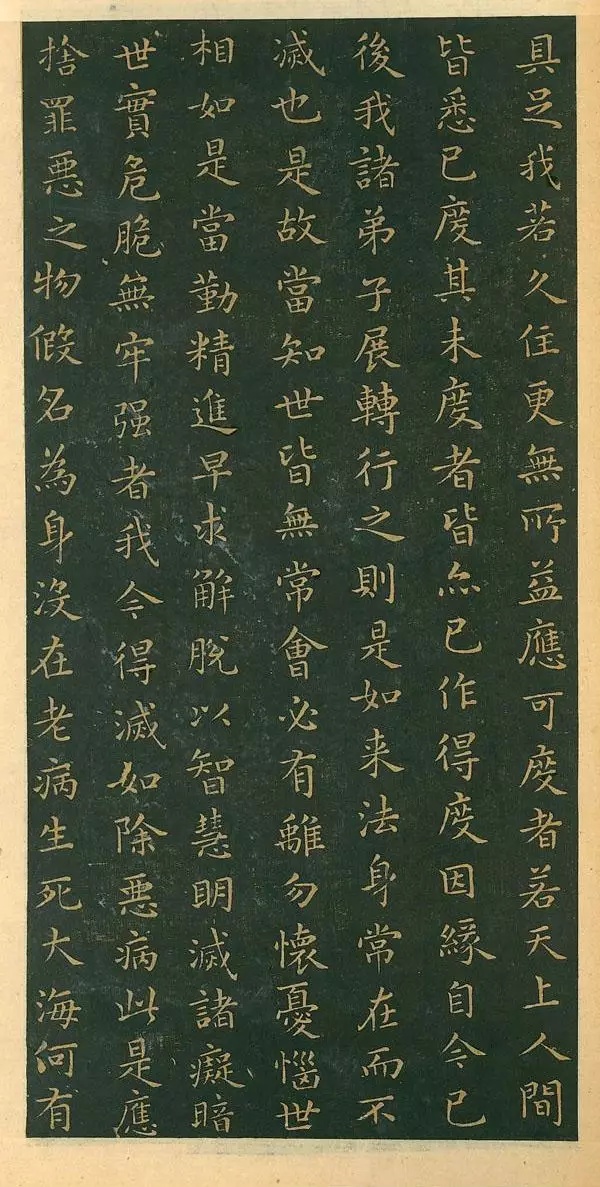 具足我若久住更無所益應可度者若天上人間
皆悉已度其未度者皆亦已作得度因緣自今已
後我諸弟子展轉行之則是如来法身常在而不
滅也是故當知世皆無常會必有離勿懷憂惱世
相如是當勤精進早求解脫以智慧明滅諸癡暗
世實危脆無牢强者我今得滅如除惡病此是應
捨罪悪之物假名為身沒在老病生死大海何有